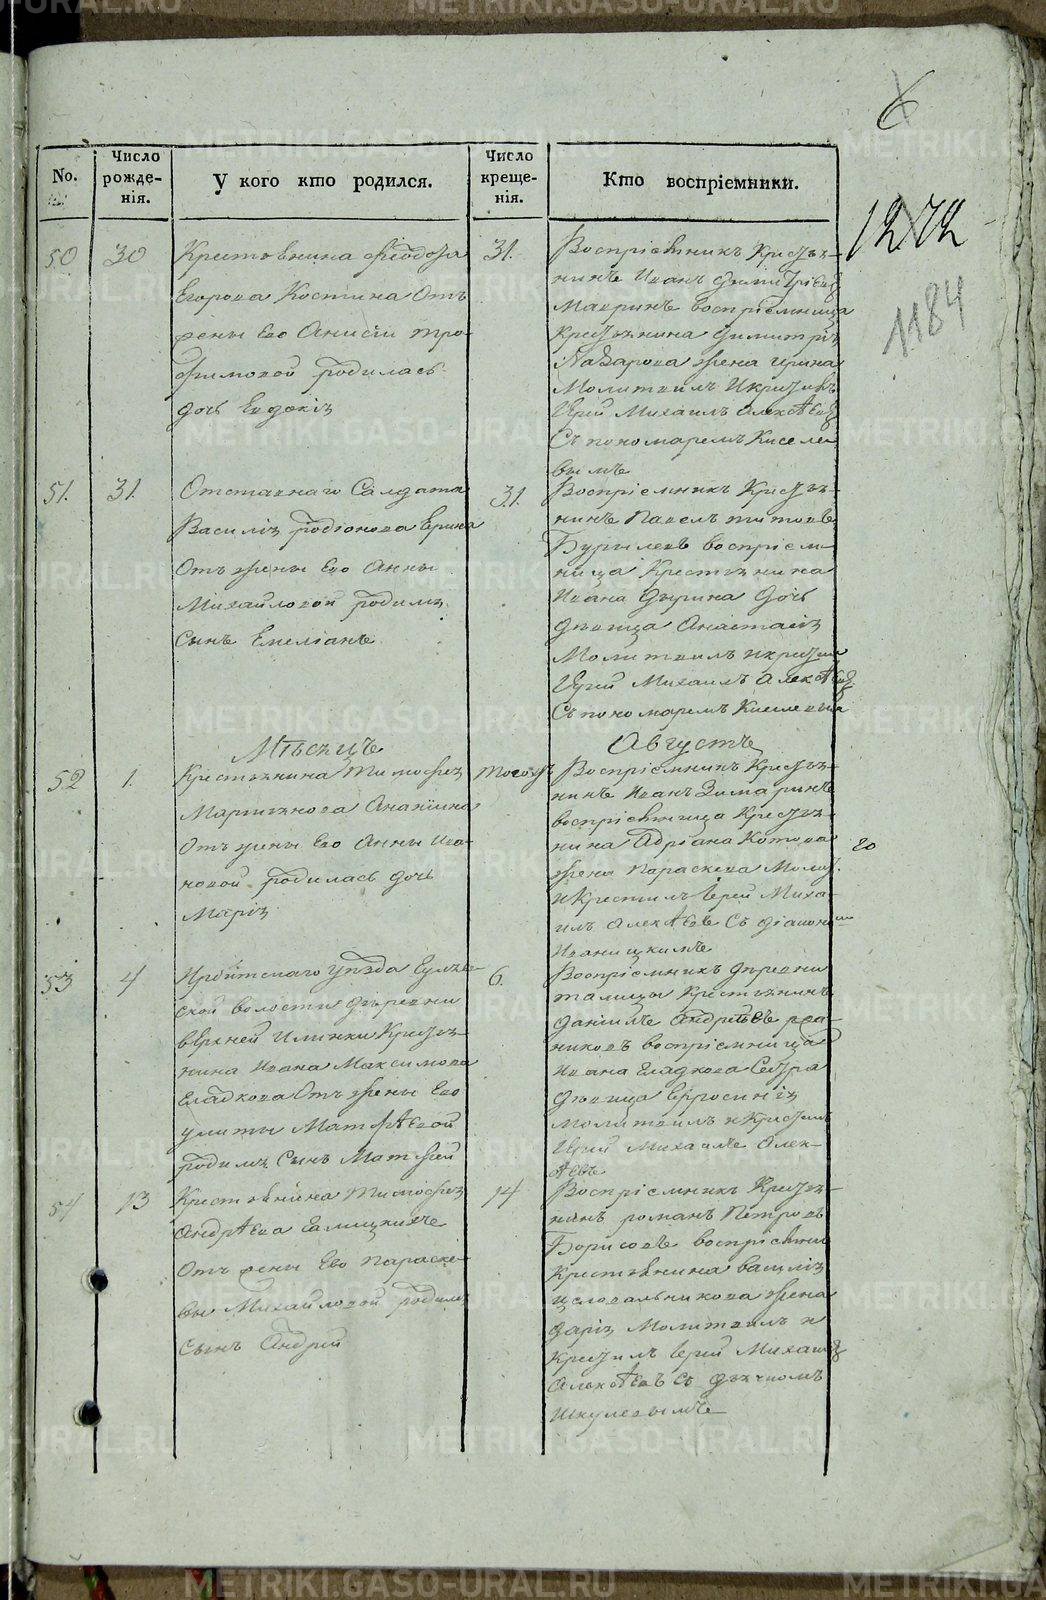 6
1272
1184
No.
Число рожде-нія.
У кого кто родился.
Число креще-нія.
Кто воспріемники.
50
30
Крестьянина Феодора
Егорова Костина отъ
жены Его Анисіи Тро-
фимовой родилась
дочь Евдокія
31.
Воспріемникъ Крестья-
нинъ Иванъ Димитріевъ
Мавринъ воспріемница
Крестьянина Димитрія
Назарова жена Ирина
Молитвилъ и крестилъ
Іерей Михаилъ Алексѣевъ
Съ пономаремъ Киселе-
вымъ
51.
31.
Отставнаго Салдата
Василія Родіонова
Отъ жены Его Анны
Михайловой родился
сынъ Емеліанъ
31.
Воспріемникъ Крестья-
нинъ Павелъ Титовъ
Бурылевъ воспріем-
ница Крестьянина
Ивана Дырина дочь
дѣвица Анастасія
Молитвилъ и крестилъ
Іерей Михаилъ Алексѣевъ
Съ пономаремъ Киселевымъ
Мѣсяцъ
Августъ
52
1.
Крестьянина Тимофея
Мартьянова Ананьина
Отъ жены Его Анны Ива-
новой родилась дочь
Марія
тогожъ
Воспріемникъ Крестья-
нинъ Иванъ Зимаринъ
воспріемница Крестья-
нина Адріана Котова
жена Параскева Молит.
и Крестилъ Іерей Миха-
илъ Алексѣевъ Съ діакономъ
Иваницкимъ
20
53
4
Ирбитскаго уѣзда
ской волости деревни
верхней Илинки Крестья-
нина Ивана Максимова
Гладкова Отъ жены Его
Улиты Матфѣевой
родился Сынъ Матфей
6.
Воспріемникъ деревни
Талицы Крестьянинъ
Даніилъ Андреевъ
никовъ воспріемница
Ивана Гладкова Сестра
дѣвица Ефросинія
Молитвилъ и Крестилъ
Іерей Михаилъ Алек-
ѣевъ
54
13
Крестьянина Тимофея
Андрѣева
Отъ жены Его Параске-
вы Михайловой родился
Сынъ Андрей
14
Воспріемникъ Крестья-
нинъ Романъ Петровъ
Борисовъ воспріемница
Крестьянина Василія
Целовальникова жена
Дарія Молитвилъ и
Крестилъ Іерей Михаилъ
Алексѣевъ съ дьячкомъ
Шкулевымъ
METRIKI.GASO-URAL.RU